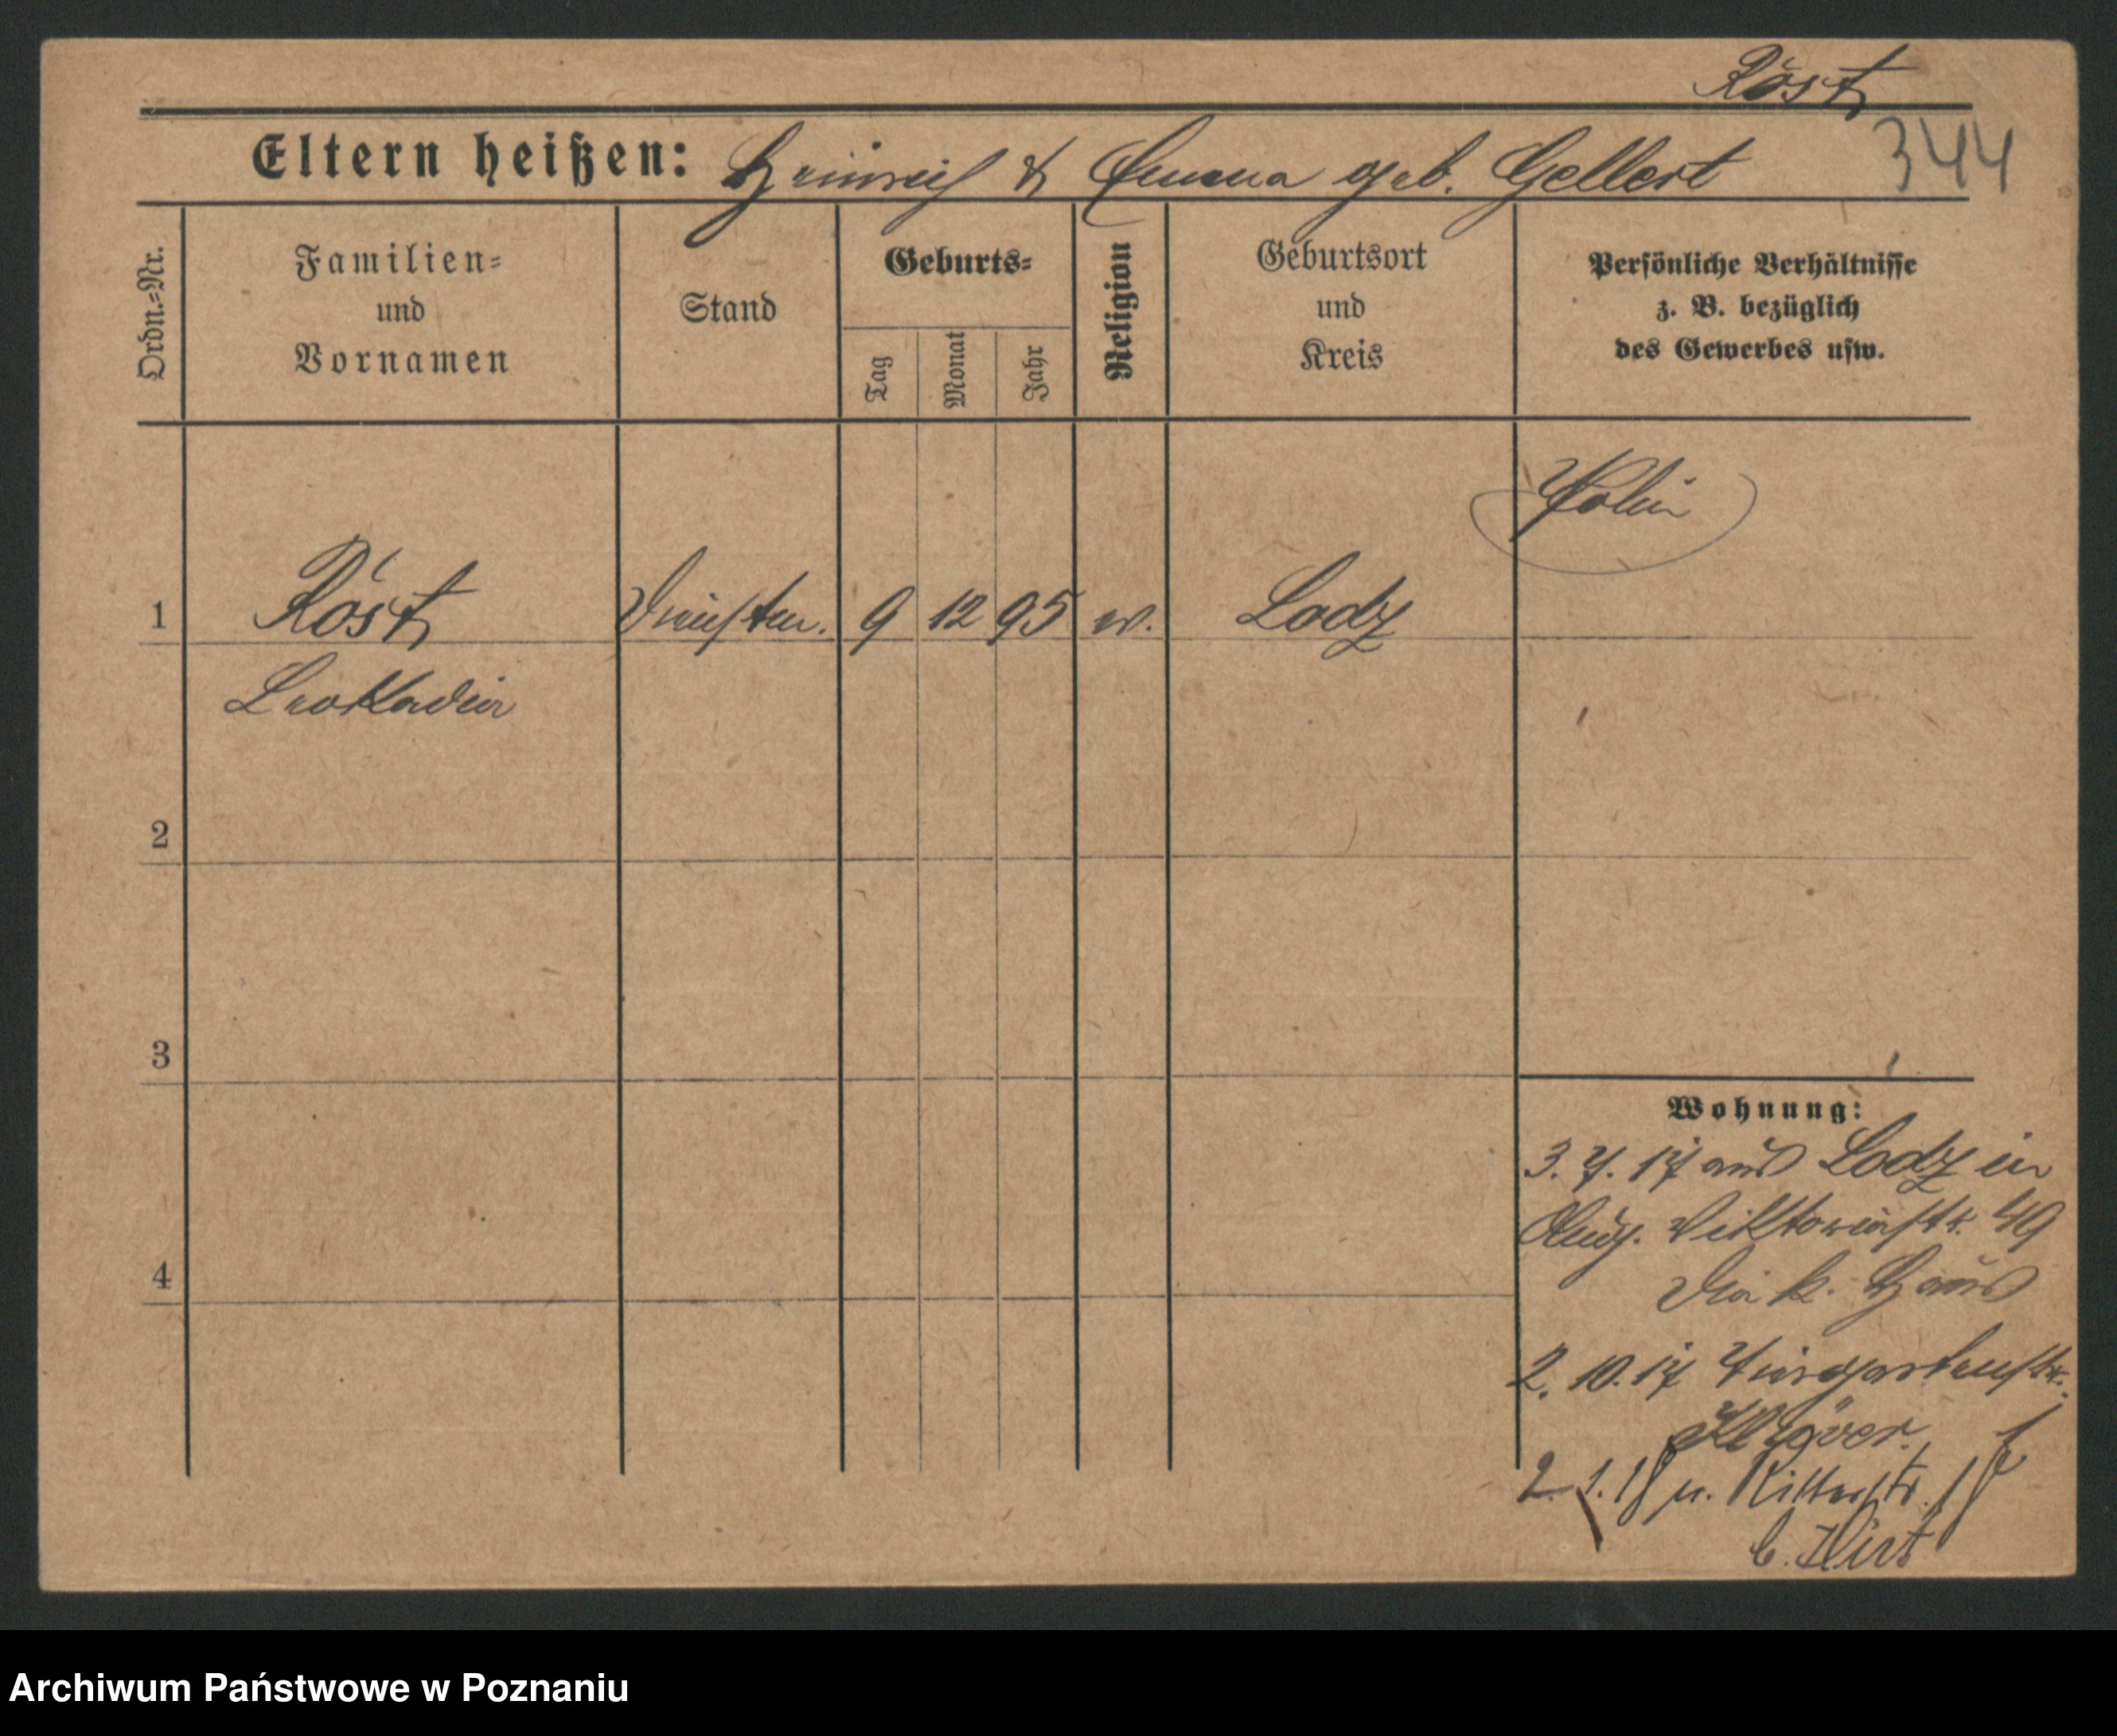 Röst
Eltern heißen: Heinrich & Emma geb. Gellert 344
Ordn.-Nr.
Familien-
und
Vornamen
Stand
Geburts-
Tag
Monat
Jahr
Religion
Geburtsort
und
Kreis
Persönliche Verhältnisse
z. B. bezüglich
des Gewerbes usw.
Polin
1 Röst 9 12 95 Lodz
Leokadia
2
3
4
Wohnung:
3. 7. 17 aus Lodz in
Viktoriastr. 49
Diak. Haus
2. 10. 17 Tiergartenstr.
2. 1. 18 n. Ritterstr.
b. Hirt
Archiwum Państwowe w Poznaniu